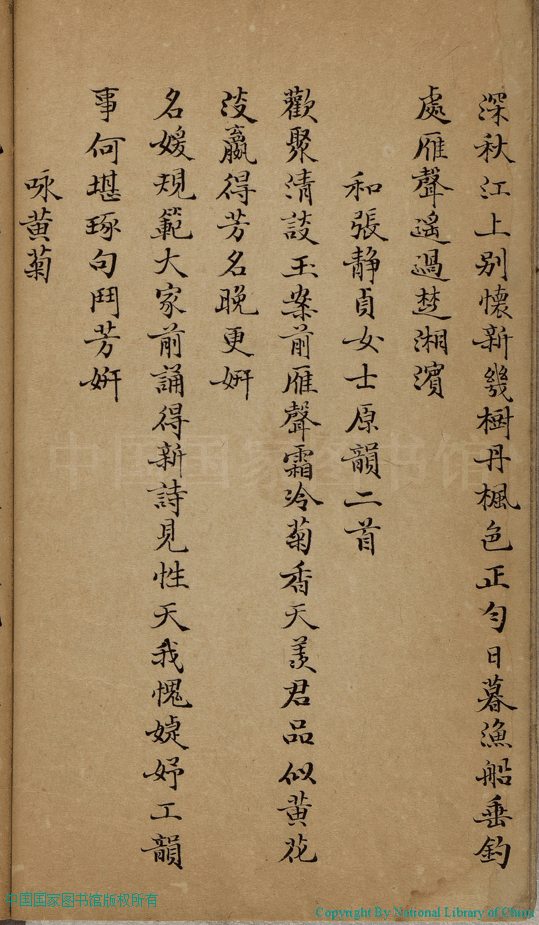 深秋江上别懷新幾樹丹楓色正勻日暮漁船垂釣
處雁聲遙過楚湘濱
和張靜貞女士原韻二首
歡聚清談玉案前雁聲霜冷菊香天羨君品似黃花
淡贏得芳名晚更妍
名媛規範大家前誦得新詩見性天我愧婕妤工韻
事何堪琢句鬥芳妍
咏黃菊
中国国家图书馆
中国国家图书馆版权所有
Copyright By National Library of China